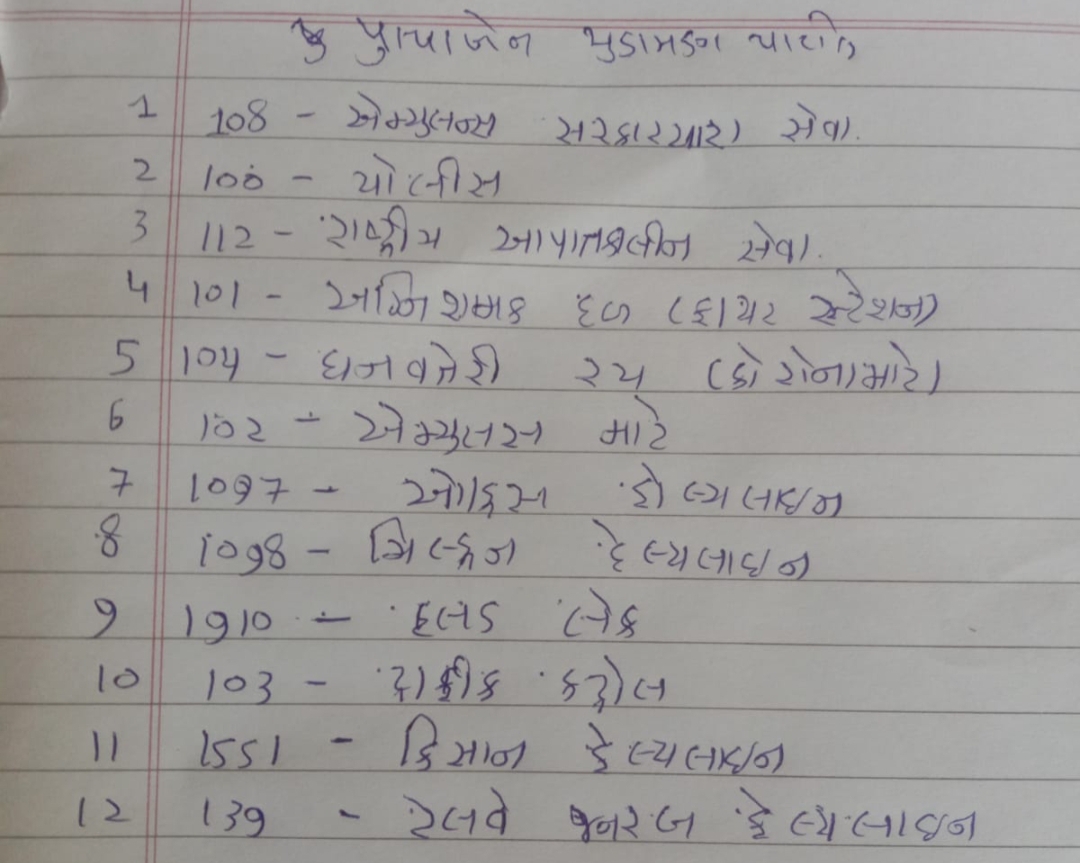 1 108 - એમ્યુલન્સ સરકારયારા સેવા.
2 100 - પોલીસ
3 112 - રાષ્ટ્રીય આપાતકલીન સેવા.
4 101 - અગ્નિશામક દળ (ફાયર સ્ટેશન)
5 104 - ધનવન્તેરી રય (કોરોનામાટે)
6 102 - એમ્યુલસ માટે
7 1097 - એઈડ્સ હેલ્પલાઇન
8 1098 - ચિલ્ડ્રન હેલ્પલાઇન
9 1910 - બ્લડ બેંક
10 103 - ટ્રાફીક કંટ્રોલ
11 1551 - કિસાન હેલ્પલાઇન
12 139 - રેલવે જનરલ હેલ્પલાઇન